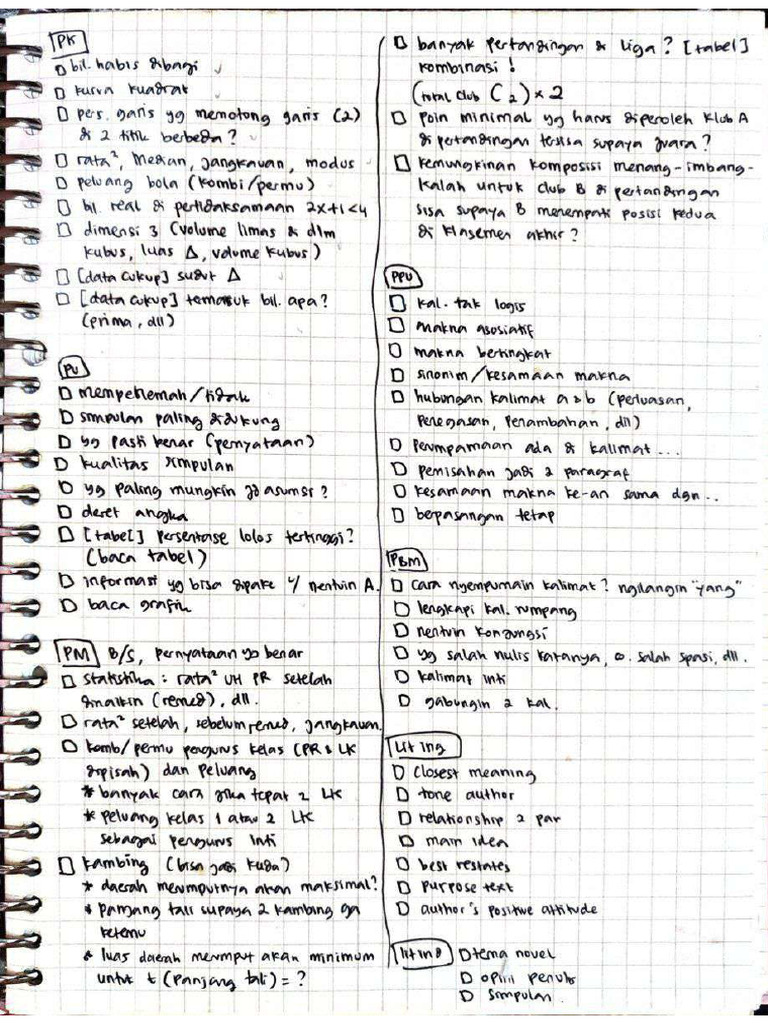 PK
□ bil. habis dibagi ✓
□ kurva kuadrat ✓
□ pers. garis yg memotong garis (2)
di 2 titik berbeda? ✓
□ rata², median, jangkauan, modus ✓
□ peluang bola (kombi/permu) ✓
□ bil. real di pertidaksamaan 2x+1<4
□ dimensi 3 (volume limas di dlm
kubus, luas Δ, volume kubus)
□ [data cukup] sudut Δ
□ [data cukup] termasuk bil. apa?
(prima, dll)
PU
□ memperlemah/tidak
□ simpulan paling didukung
□ yg pasti benar (pernyataan)
□ kualitas simpulan
□ yg paling mungkin jd asumsi?
□ deret angka
□ [tabel] persentase lolos tertinggi?
(baca tabel)
□ informasi yg bisa dipake u/ nentuin A.
□ baca grafik
PM B/S, pernyataan yg benar
□ statistika : rata² UH PR setelah
dinaikin (remed), dll.
□ rata² setelah, sebelum remed, jangkauan.
□ komb/permu pengurus kelas (PR & LK
dipisah) dan peluang
* banyak cara jika tepat 2 LK
* peluang kelas 1 atau 2 LK
sebagai pengurus inti
□ kambing (bisa jadi kuda)
* daerah merumputnya akan maksimal?
* panjang tali supaya 2 kambing ga
ketemu
* luas daerah merumput akan minimum
untuk t (panjang tali) = ?
□ banyak pertandingan di liga? [tabel]
kombinasi!
(total club C₂) × 2
□ poin minimal yg harus diperoleh klub A
di pertandingan tersisa supaya juara?
□ kemungkinan komposisi menang-imbang-
kalah untuk club B di pertandingan
sisa supaya B menempati posisi kedua
di klasemen akhir?
PPU
□ kal. tak logis
□ makna asosiatif
□ makna bertingkat
□ sinonim/kesamaan makna
□ hubungan kalimat a & b (perluasan,
penegasan, penambahan, dll)
□ perumpamaan ada di kalimat...
□ pemisahan jadi 2 paragraf
□ kesamaan makna ke-an sama dgn..
□ berpasangan tetap
PBM
□ cara nyempurnain kalimat? ngilangin "yang"
□ lengkapi kal. rumpang
□ nentuin konjungsi
□ yg salah nulis katanya, salah spasi, dll.
□ kalimat inti
□ gabungin 2 kal.
Lit Ing
□ closest meaning
□ tone author
□ relationship 2 par
□ main idea
□ best restates
□ purpose text
□ author's positive attitude
litind □ tema novel
□ opini penulis
□ simpulan.